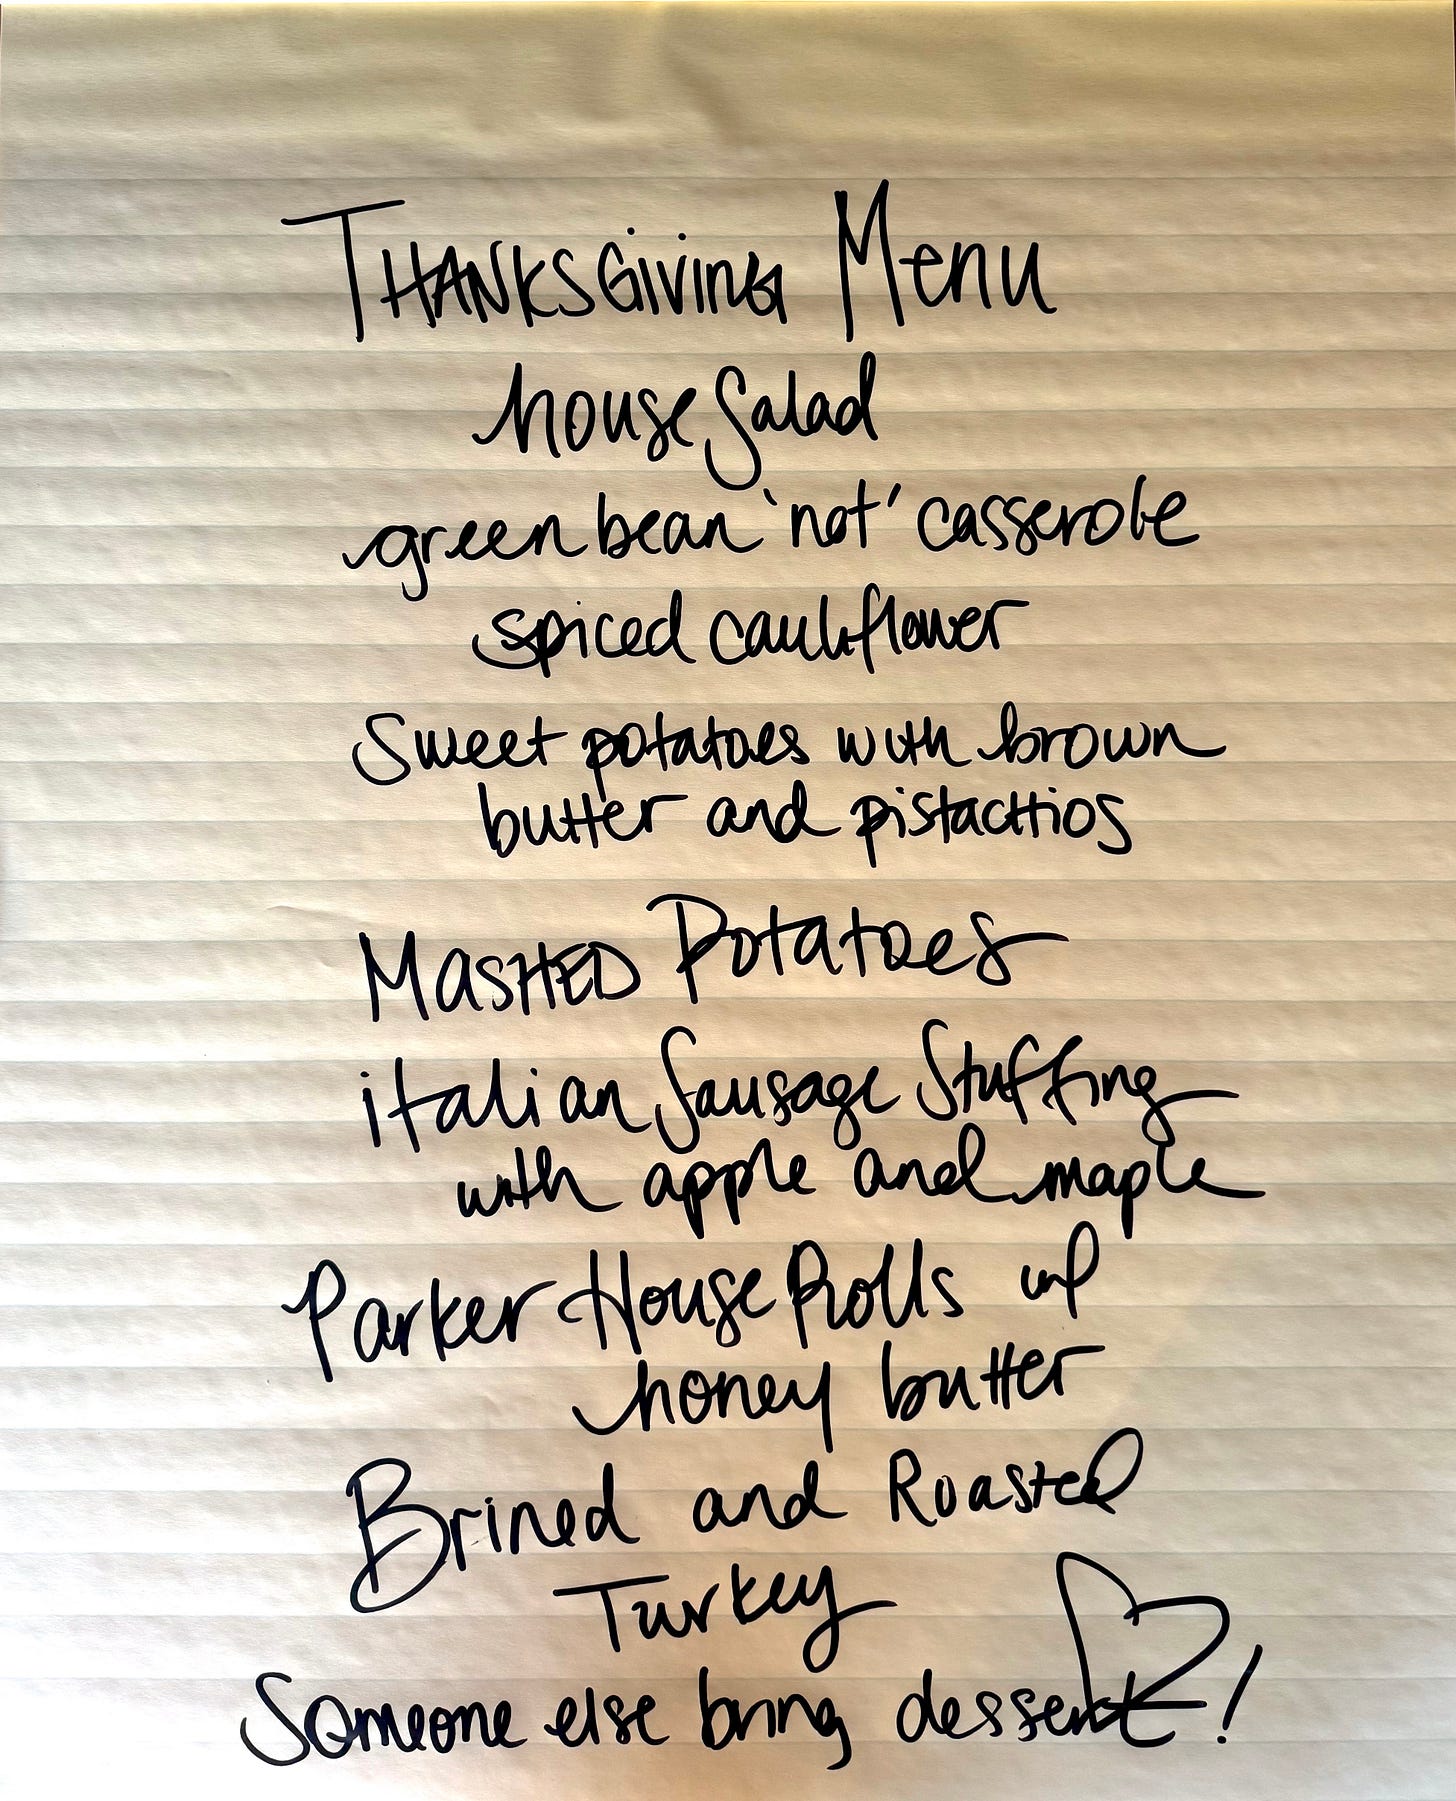 THANKSGiving Menu
house Salad
green bean 'not' casserole
spiced cauliflower
Sweet potatoes with brown
butter and pistachios
MASHED Potatoes
italian Sausage Stuffing
with apple and maple
Parker House Rolls w/
honey butter
Brined and Roasted
Turkey
Someone else bring dessert!